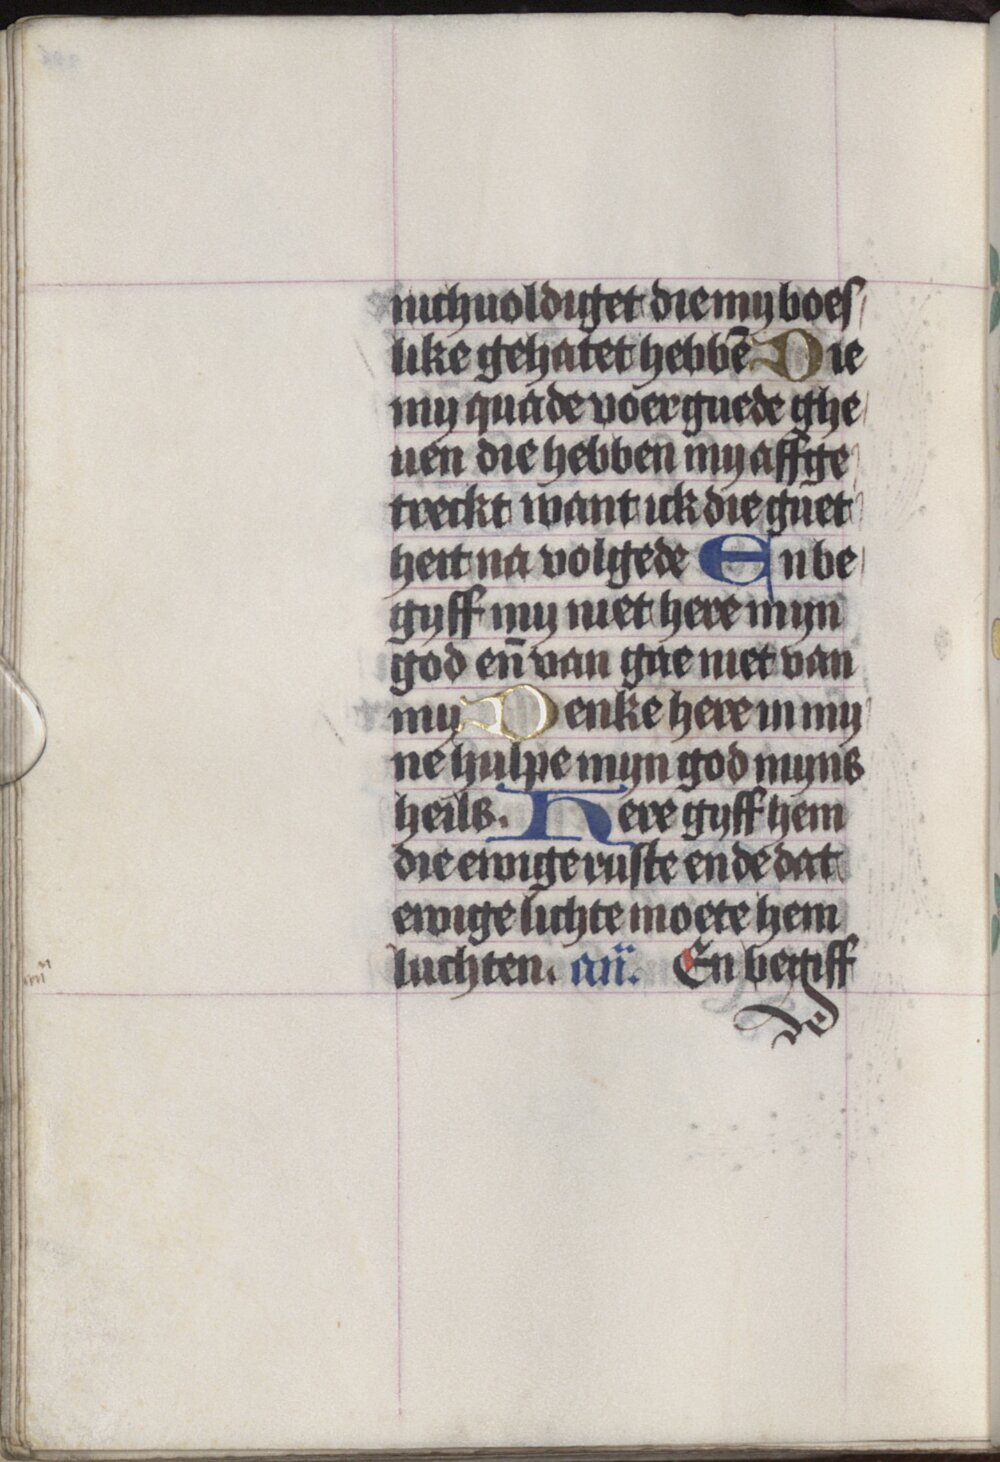 nichuoldiget die my boes
like gehatet hebbē Die
my quade voer guede ghe
uen die hebben my affge
treckt want ick die guet
heit na volgede En be
gyff my niet here mijn
god eñ van gae niet van
my Denke here in my
ne hulpe mijn god mijns
heils. Here gyff hem
die ewige ruste ende dat
ewige lichte moete hem
luchten. añ. En begiff